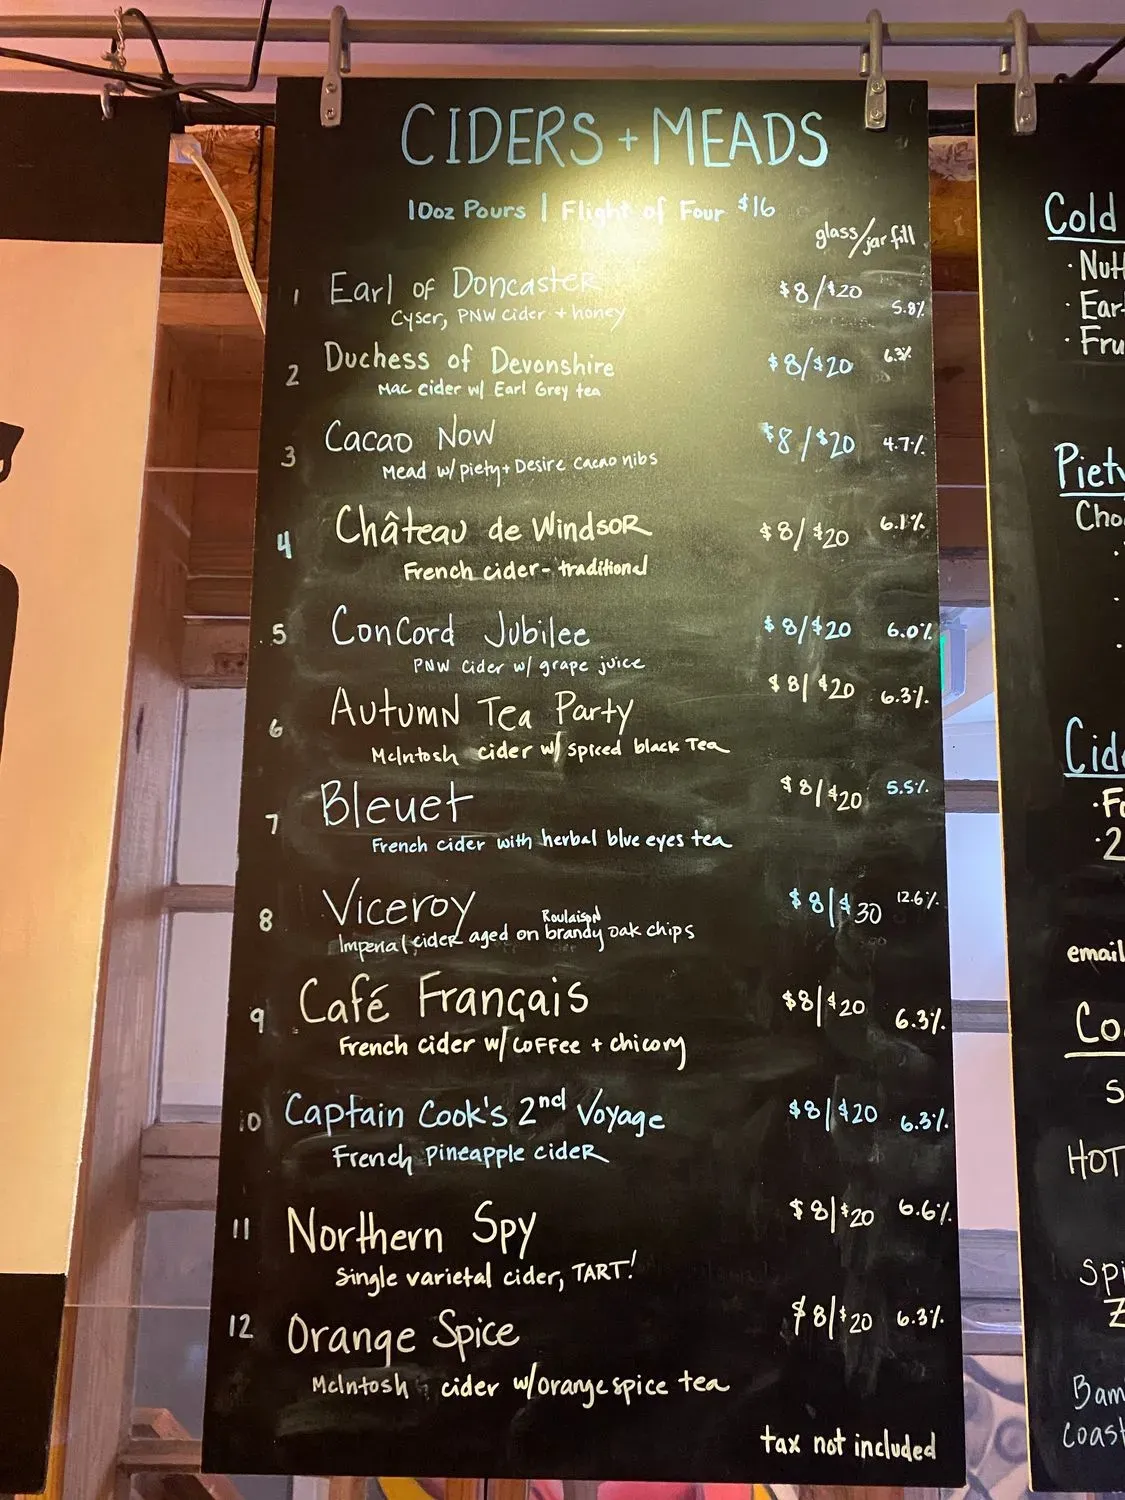 CIDERS + MEADS
10oz Pours | Flight of Four $16
glass/jar fill
1 Earl of Doncaster $8/$20 5.8%
Cyser, PNW cider + honey
2 Duchess of Devonshire $8/$20 6.3%
Mac cider w/ Earl Grey tea
3 Cacao Now $8/$20 4.7%
Mead w/ piety + Desire Cacao nibs
4 Château de Windsor $8/$20 6.1%
French cider - traditional
5 Concord Jubilee $8/$20 6.0%
PNW cider w/ grape juice
6 Autumn Tea Party $8/$20 6.3%
McIntosh cider w/ spiced black Tea
7 Bleuet $8/$20 5.5%
French cider with herbal blue eyes tea
8 Viceroy $8/$30 12.6%
Roulaison
Imperial cider aged on brandy oak chips
9 Café Français $8/$20 6.3%
French cider w/ coffee + chicory
10 Captain Cook's 2nd Voyage $8/$20 6.3%
French pineapple cider
11 Northern Spy $8/$20 6.6%
Single varietal cider, TART!
12 Orange Spice $8/$20 6.3%
McIntosh cider w/ orange spice tea
tax not included
Cold
· Nutt
· Ear
· Fru
Piety
Cho
Cide
· Fo
· 2
email
Co
S
HOT
Spi
Bam
coast